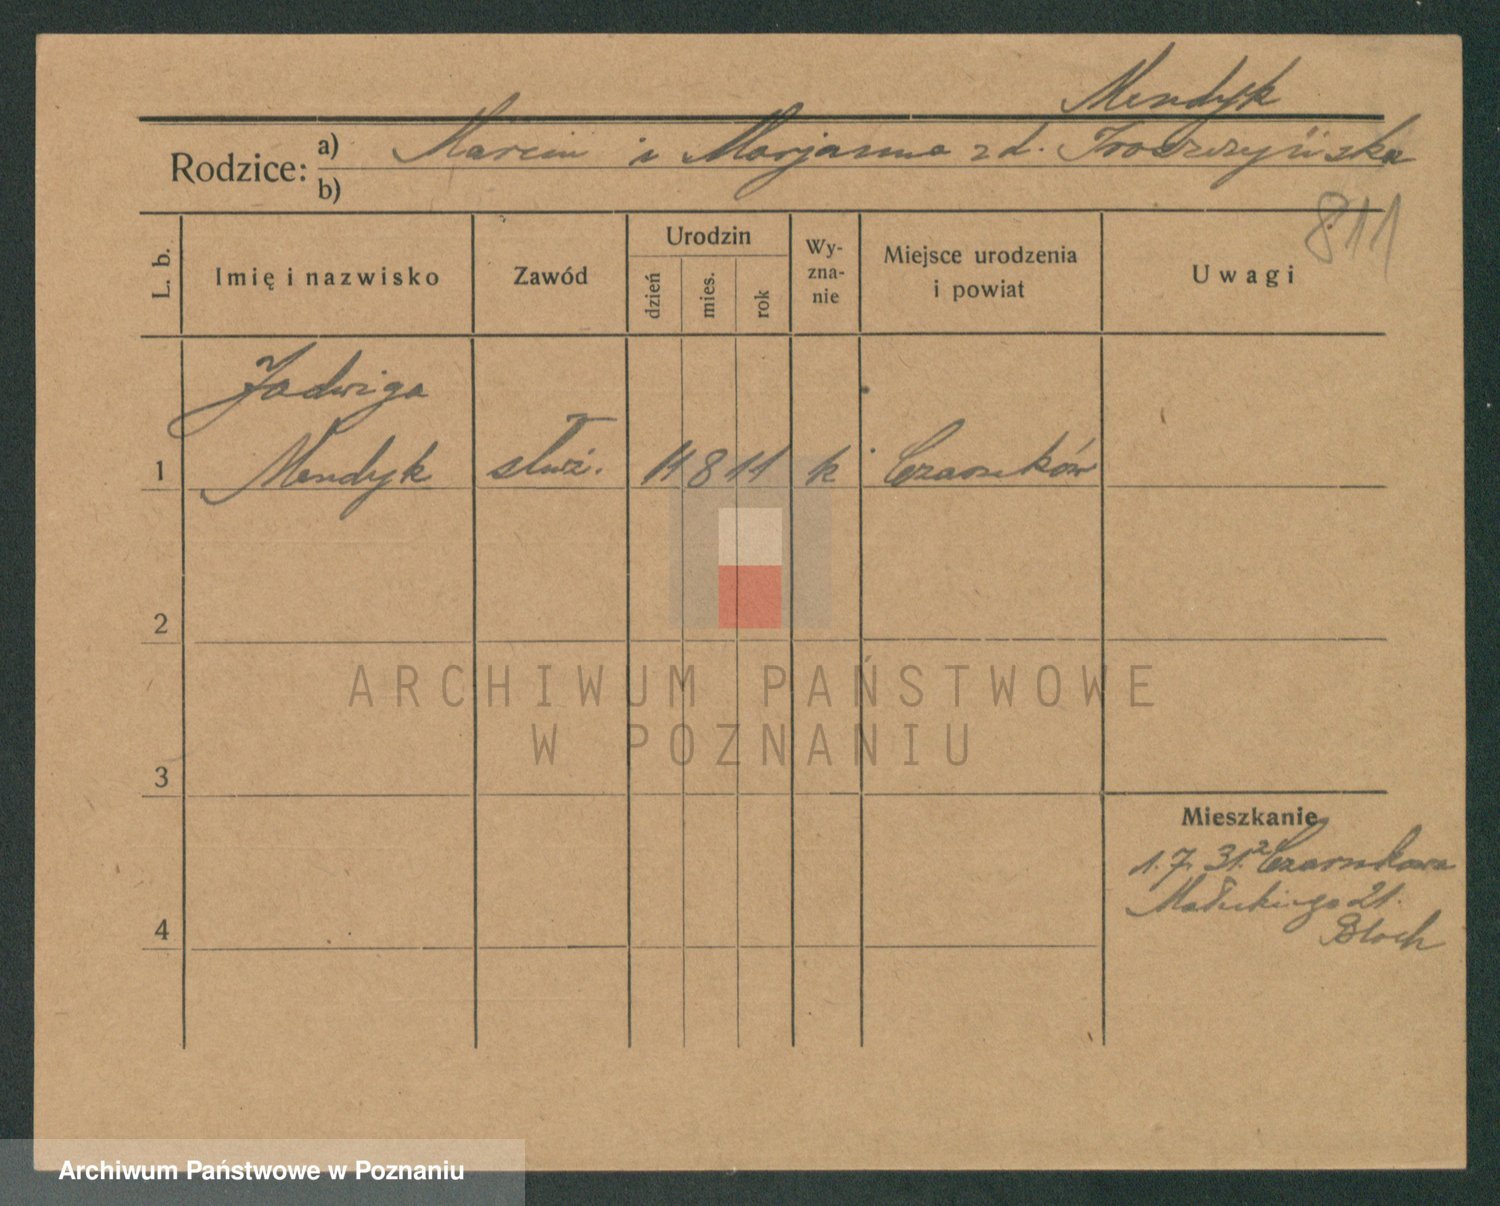 Mendyk
Rodzice: a) Marcin i Marjanna zd.
b)
811
L. b. Imię i nazwisko Zawód Urodzin dzień mies. rok Wy- zna- nie Miejsce urodzenia i powiat Uwagi
Jadwiga
1 Mendyk służ. 14 8 11 k Czarnków
2
ARCHIWUM PAŃSTWOWE
W POZNANIU
3
Mieszkanie
1.7.31. z Czarnkowa
4 21.
Bloch
Archiwum Państwowe w Poznaniu